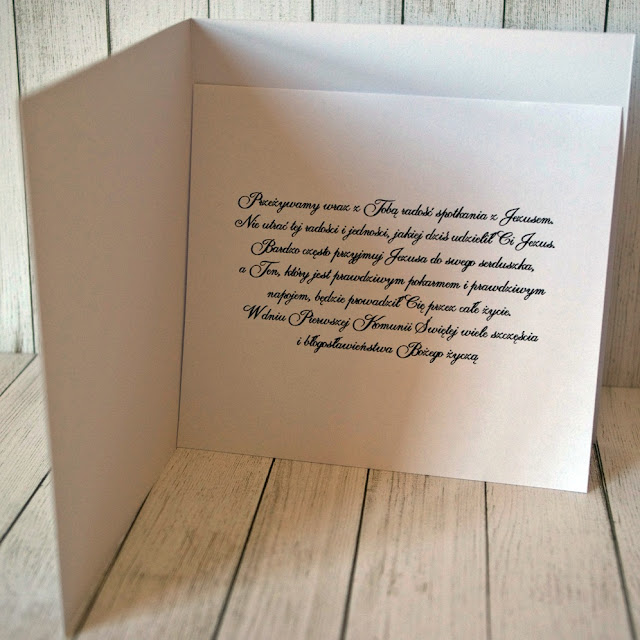 Przeżywamy wraz z Tobą radość spotkania z Jezusem.
Nie utrać tej radości i jedności, jakiej dziś udzielił Ci Jezus.
Bardzo często przyjmuj Jezusa do swego serduszka,
a Ten, który jest prawdziwym pokarmem i prawdziwym
napojem, będzie prowadził Cię przez całe życie.
W dniu Pierwszej Komunii Świętej wiele szczęścia
i błogosławieństwa Bożego życzą